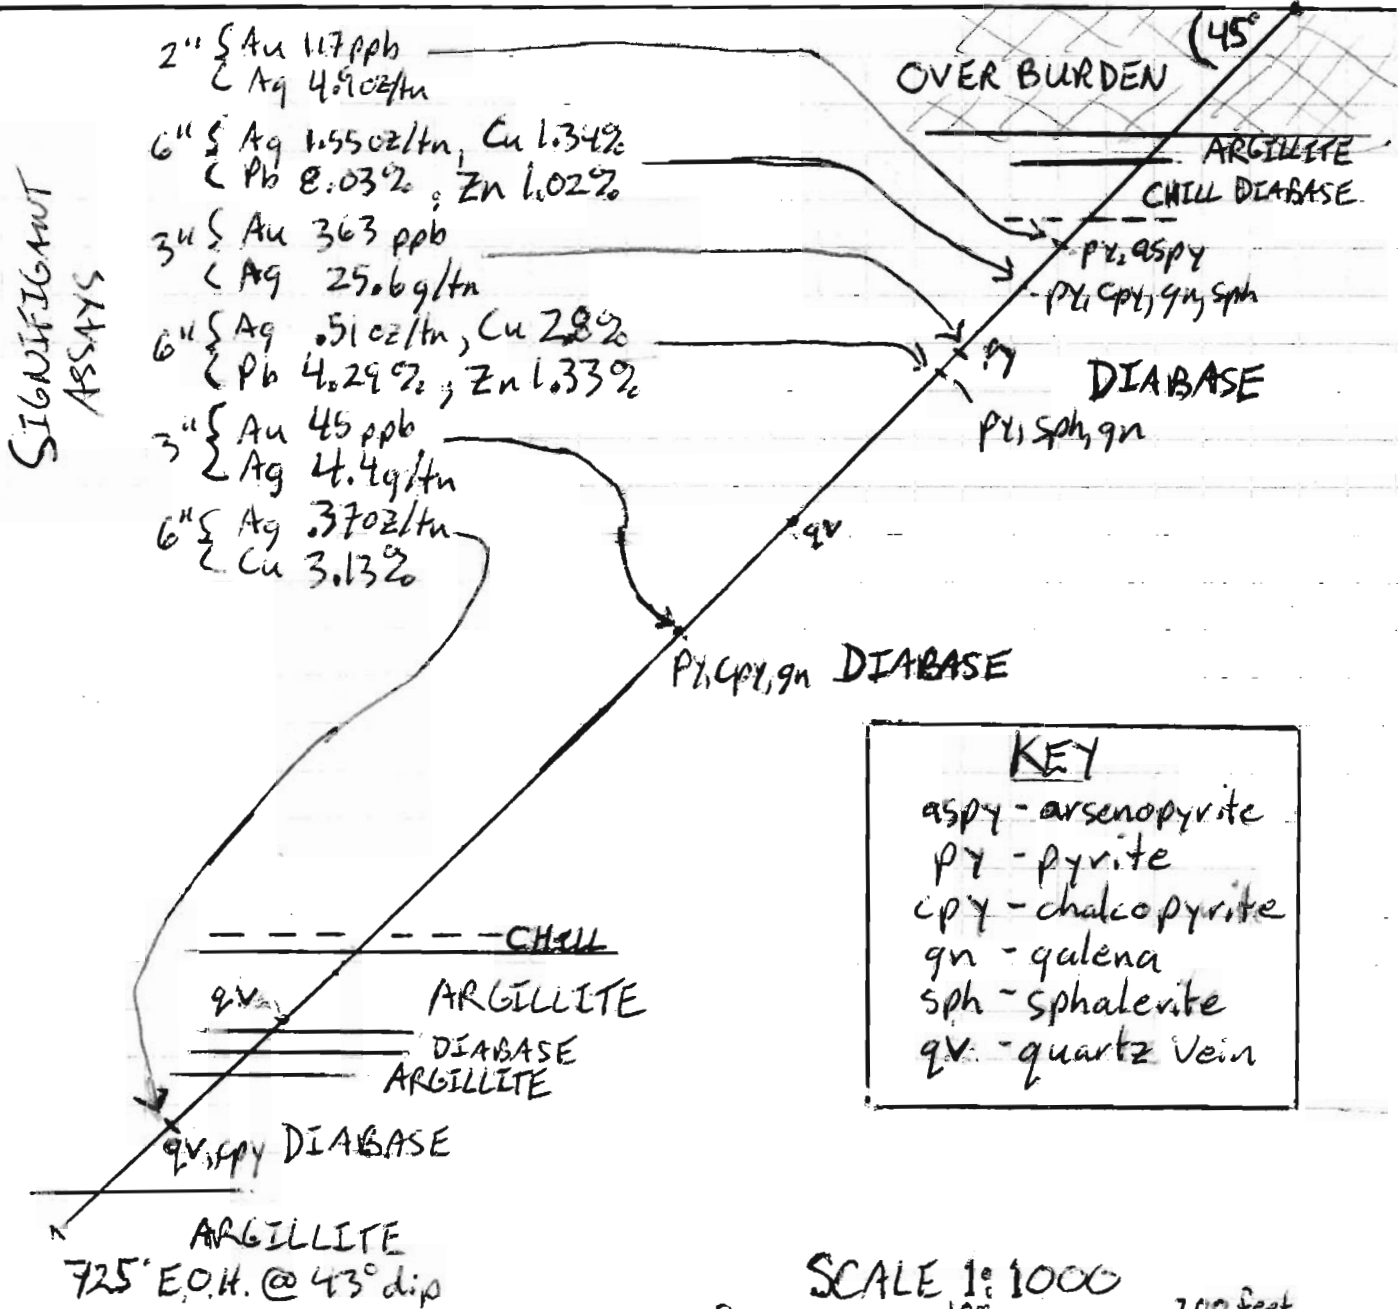 SIGNIFIGANT
ASSAYS
2" { Au 117 ppb
Ag 4.9oz/tn
6" { Ag 1.55oz/tn, Cu 1.34%
Pb 8.03%, Zn 1.02%
3" { Au 363 ppb
Ag 25.6g/tn
6" { Ag .51oz/tn, Cu 2.8%
Pb 4.29%, Zn 1.33%
3" { Au 45 ppb
Ag 4.4g/tn
6" { Ag .37oz/tn
Cu 3.13%
45°
OVER BURDEN
ARGILLITE
CHILL DIABASE
py, aspy
py, cpy, gn, sph
py
DIABASE
py, sph, gn
qv
py, cpy, gn DIABASE
KEY
aspy - arsenopyrite
py - pyrite
cpy - chalcopyrite
gn - galena
sph - sphalerite
qv. - quartz vein
CHILL
qv
ARGILLITE
DIABASE
ARGILLITE
qv, cpy DIABASE
ARGILLITE
725' E.O.H. @ 43° dip
SCALE 1:1000
200 feet